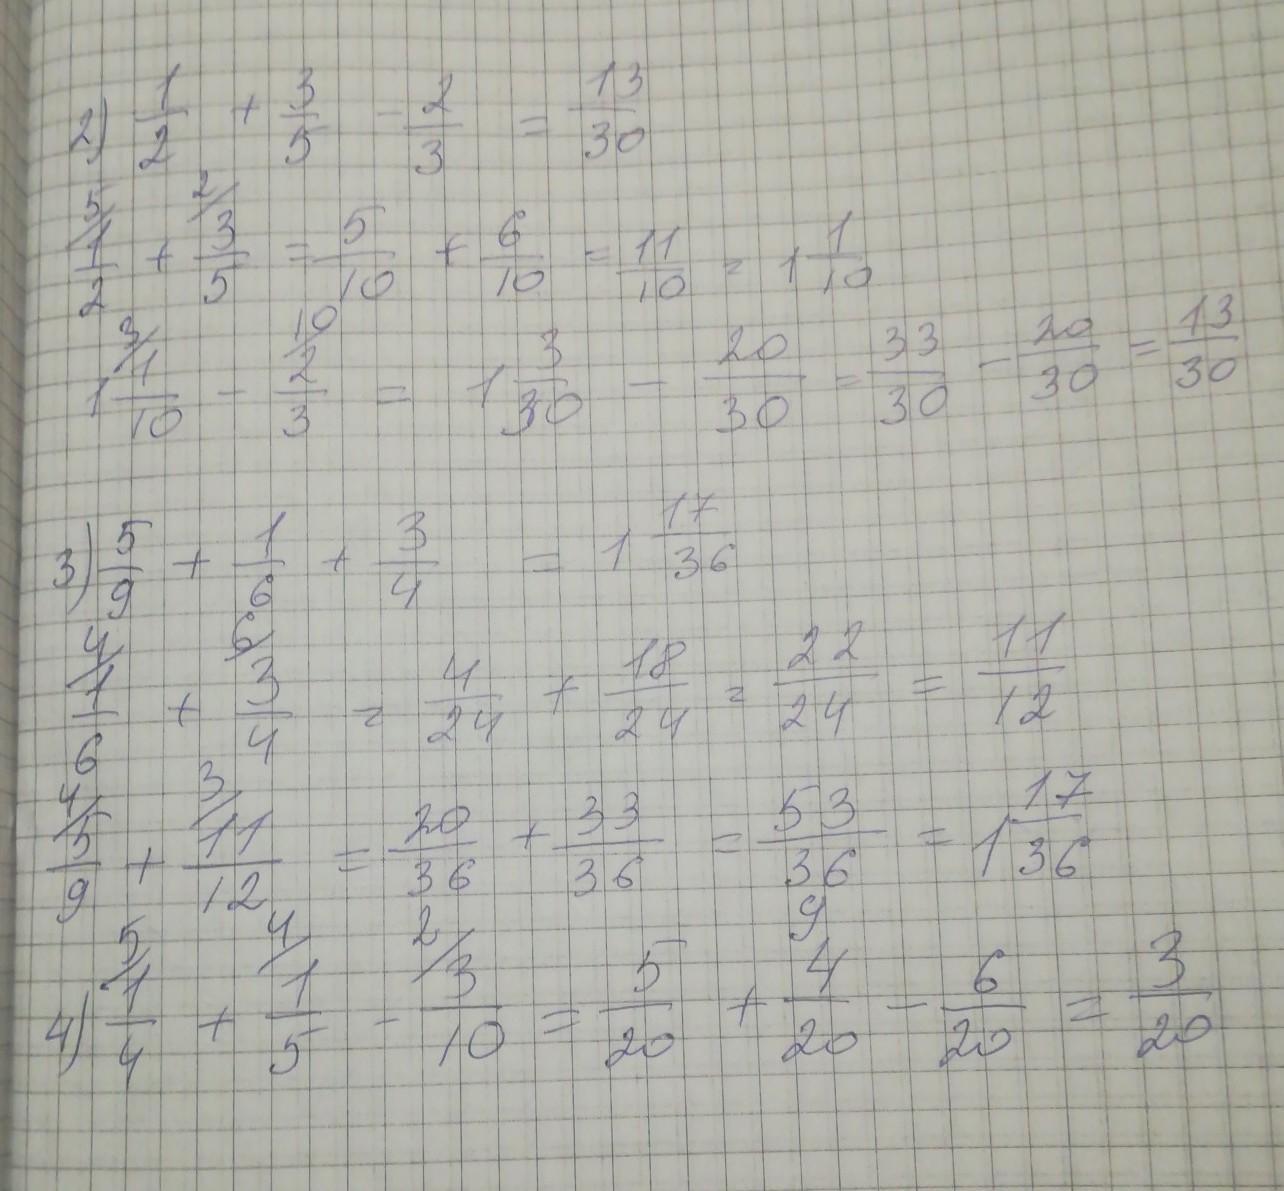 2) 1/2 + 3/5 - 2/3 = 13/30
5/ 1/2 + 2/ 3/5 = 5/10 + 6/10 = 11/10 = 1 1/10
1 3/ 1/10 - 10/ 2/3 = 1 3/30 - 20/30 = 33/30 - 20/30 = 13/30
3) 5/9 + 1/6 + 3/4 = 1 17/36
4/ 1/6 + 6/ 3/4 = 4/24 + 18/24 = 22/24 = 11/12
4/ 5/9 + 3/ 11/12 = 20/36 + 33/36 = 53/36 = 1 17/36
9
4) 5/ 1/4 + 4/ 1/5 - 2/ 3/10 = 5/20 + 4/20 - 6/20 = 3/20